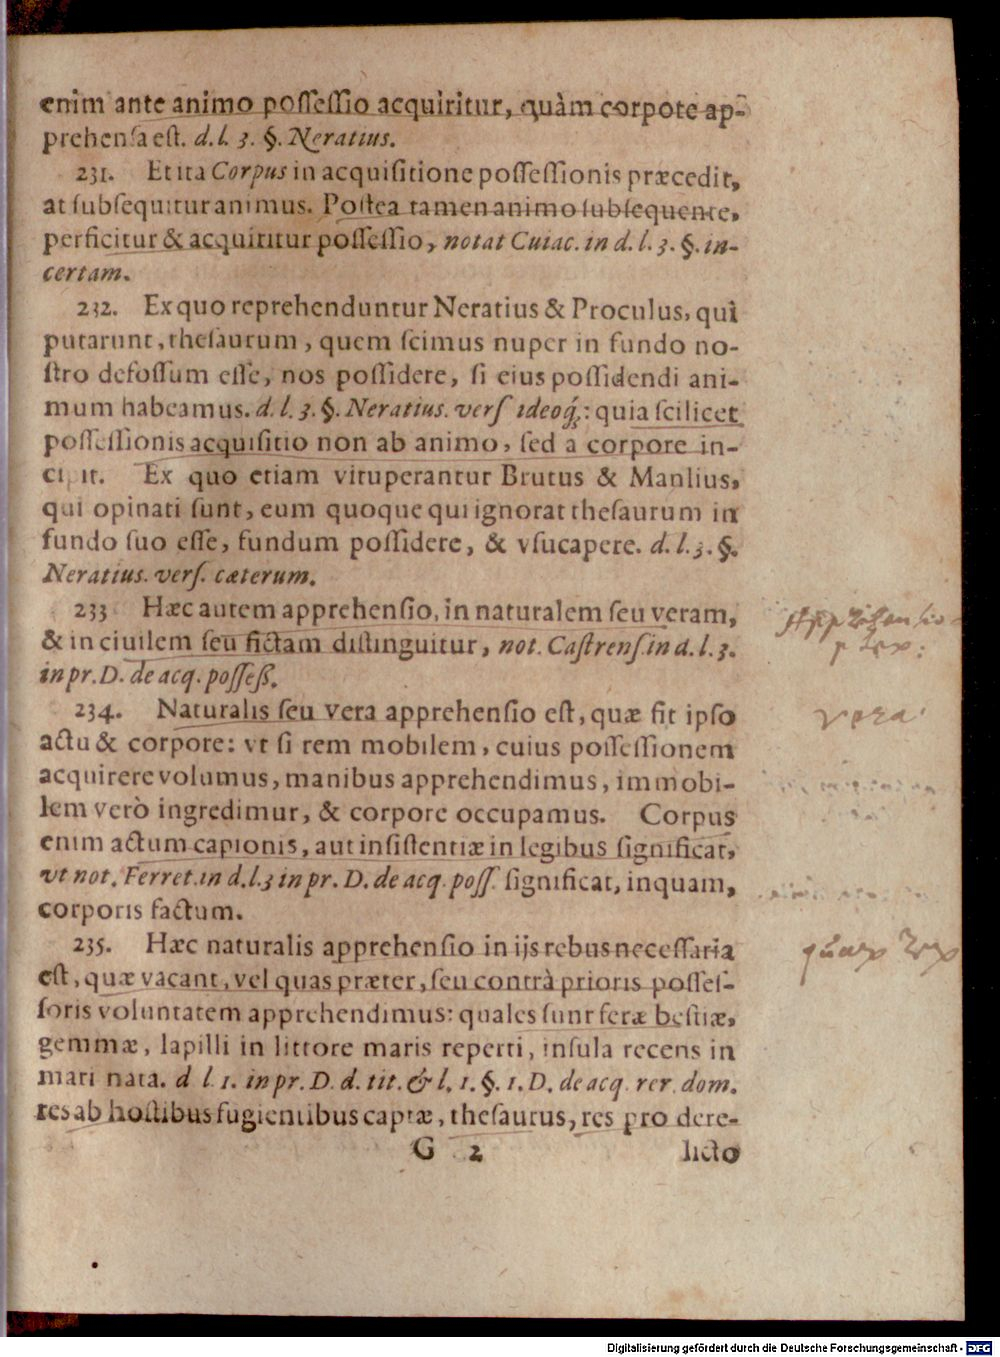 enim ante animo possessio acquiritur, quàm corpore ap-
prehensa est. d. l. 3. §. Neratius.
231. Et ita Corpus in acquisitione possessionis præcedit,
at subsequitur animus. Postea tamen animo subsequente,
perficitur & acquiritur possessio, notat Cuiac. in d. l. 3. §. in-
certam.
232. Ex quo reprehenduntur Neratius & Proculus, qui
putarunt, thesaurum, quem scimus nuper in fundo no-
stro defossum esse, nos possidere, si eius possidendi ani-
mum habeamus. d. l. 3. §. Neratius. vers ideoq́;: quia scilicet
possessionis acquisitio non ab animo, sed a corpore in-
cipit. Ex quo etiam vituperantur Brutus & Manlius,
qui opinati sunt, eum quoque qui ignorat thesaurum in
fundo suo esse, fundum possidere, & vsucapere. d. l. 3. §.
Neratius. vers. cæterum.
233 Hæc autem apprehensio, in naturalem seu veram,
& in ciuilem seu fictam distinguitur, not. Castrens. in d. l. 3.
in pr. D. de acq. possess.
234. Naturalis seu vera apprehensio est, quæ fit ipso
actu & corpore: vt si rem mobilem, cuius possessionem
acquirere volumus, manibus apprehendimus, immobi-
lem verò ingredimur, & corpore occupamus. Corpus
enim actum capionis, aut insistentiæ in legibus significat,
vt not. Ferret. in d. l. 3 in pr. D. de acq. poss. significat, inquam,
corporis factum.
vera
235. Hæc naturalis apprehensio in ijs rebus necessaria
est, quæ vacant, vel quas præter, seu contrà prioris posses-
soris voluntatem apprehendimus: quales sunt feræ bestiæ,
gemmæ, lapilli in littore maris reperti, insula recens in
mari nata. d l. 1. in pr. D. d. tit. & l. 1. §. 1. D. de acq. rer. dom.
res ab hostibus fugientibus captæ, thesaurus, res pro dere-
G 2 licto
Digitalisierung gefördert durch die Deutsche Forschungsgemeinschaft - DFG